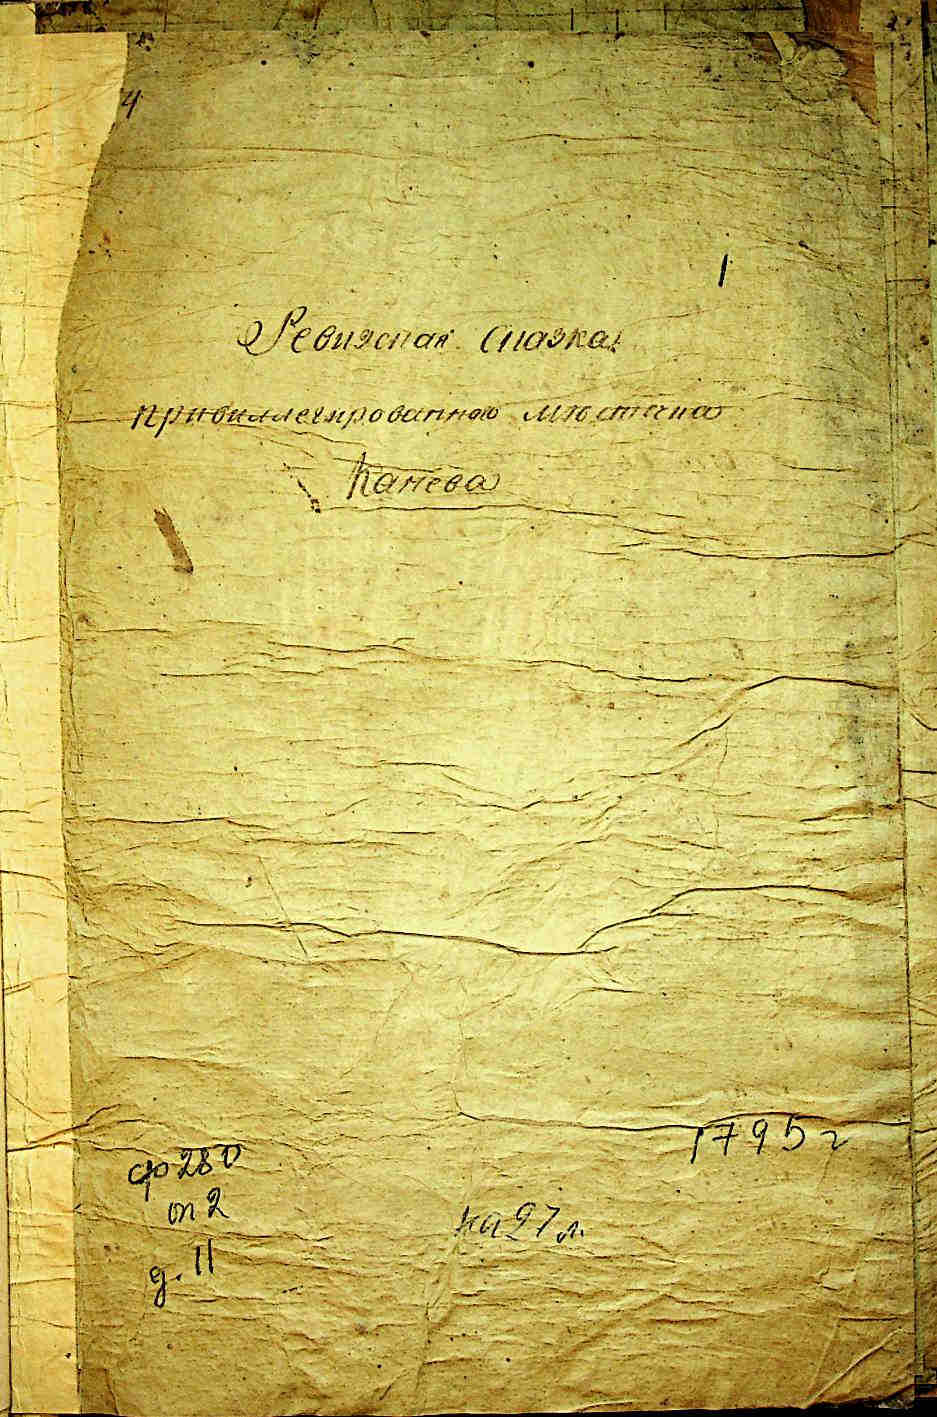 4
1
Ревизская Сказка
привиллегированного мѣстечка
Канева
1795 г
ф 280
оп 2
на 27 л.
д. 11